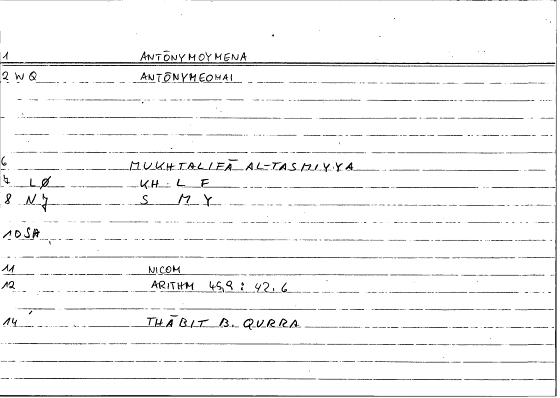 1 ANTŌNYMOYMENA
2 W Q ANTŌNYMEOMAI
6 MUKHTALIFĀ AL-TASMIYYA
7 L Ø KH L F
8 N J S M Y
10 SA
11 NICOM
12 ARITHM 45,9 : 42.6
14 THĀBIT B. QURRA